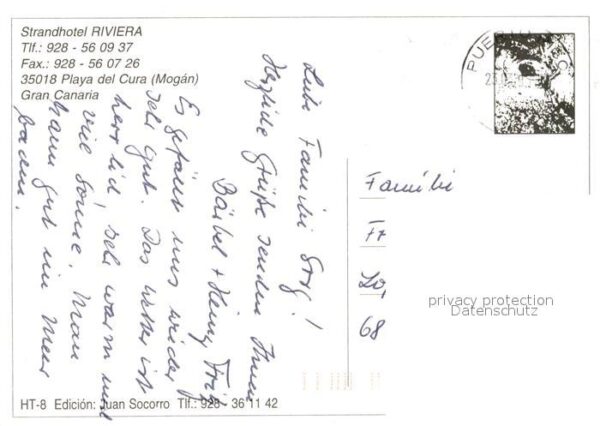 Strandhotel RIVIERA
Tlf.: 928 - 56 09 37
Fax.: 928 - 56 07 26
35018 Playa del Cura (Mogán)
Gran Canaria
Liebe Familie
Herzliche Grüße senden Ihnen
Bärbel + Heinz
Es gefällt uns wieder
sehr gut. Das Wetter ist
herrlich, sehr warm und
viel Sonne. Man
kann gut im Meer
baden.
Familie
68
privacy protection
Datenschutz
HT-8 Edición: Juan Socorro Tlf.: 928 - 36 11 42